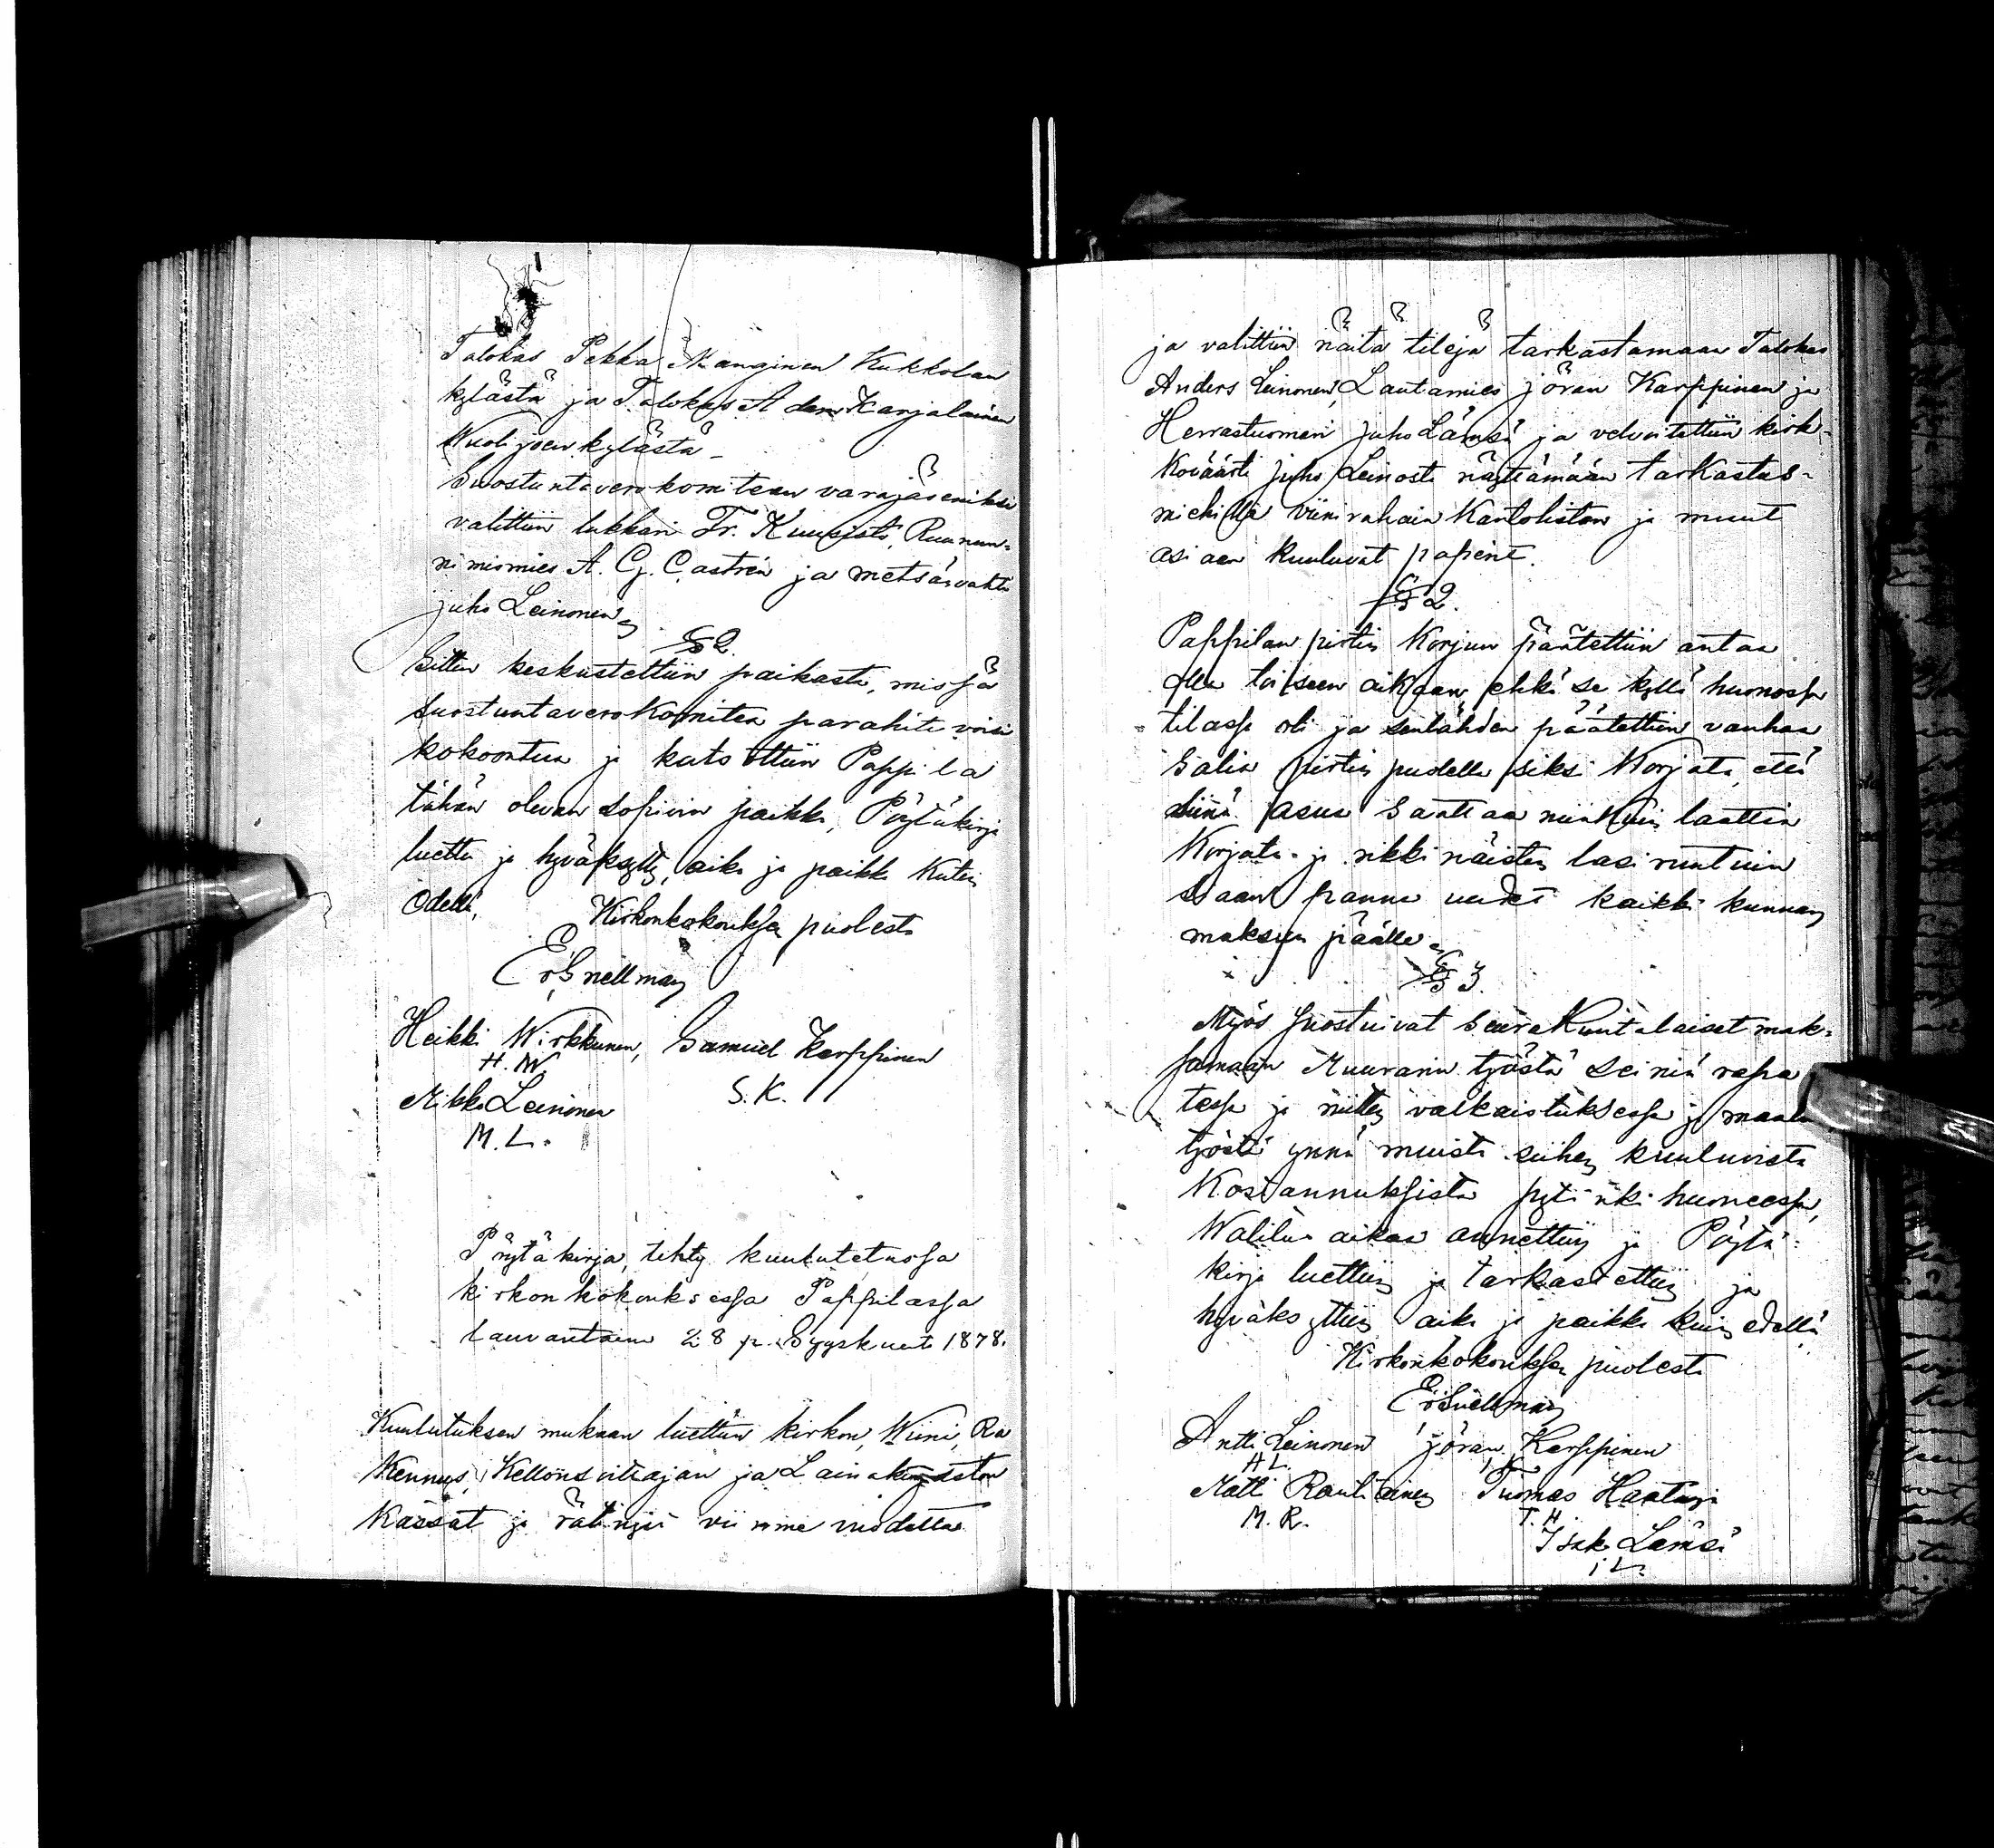 Talokas Pekka Manginen Kukkolan
kylästä ja Talokas Adam Karjalainen
Wuolijoen kylästä –
Suostuntaverokomitean varajäseniksi
valittiin lukkari Fr. Kuusisto, Ruunun-
nimismies A. G. Castrén ja metsänvahti
juho Leinonen
§ 2.
Sitten keskustettiin paikasta, missä
suostuntaverokomitea parahite voisi
kokoontua ja katsottiin Pappila
tähän olevan sopivin paikka, Pöytäkirja
luettu ja hyväksytty, aika ja paikka kuten
edellä,
Kirkonkokouksen puolesta
Er Snellman
Heikki Wirkkunen, Samuel Karppinen
H. W. S. K.
Mikko Leinonen
M. L.
Pöytäkirja, tehty kuulutetussa
kirkonkokouksessa Pappilassa
lauvantaina 28 p. Syyskuuta 1878.
Kuulutuksen mukaan luettiin kirkon, Wiini, Ra
kennus, Kellonsoittajan ja Lainakunston
Kassat ja rätingit viimme vuodelta
ja valittiin näitä tilejä tarkastamaan Talokas
Anders Leinonen, Lautamies jöran Karppinen ja
Herrastuomari juho Lämsä ja velvoitettiin kirk-
kovääri juho Leinosta näyttämään tarkastus-
miehillä viinirahain Kantolistan ja muut
asiaan kuuluvat paperit.
§ 2.
Pappilan pirtin Korjuu päätettiin antaa
olla toiseen aikaan, ehkä se kyllä huonossa
tilassa oli ja senlähden päätettiin vanhaa
Salia pirtin puolella siksi Korjata, että
siinä asua saattaa niinkuin laattia
Korjata ja rikkinäisten lasiruutuin
siaan panna uudet kaikki kunnan
maksun päälle
§ 3.
Myös suostuivat Seurakuntalaiset mak-
samaan Muurarin työstä seiniä rapa
tessa ja niitten valkaistuksessa ja maala
työstä ynnä muista siihen kuuluvista
Kostannuksista huoneessa,
Walitus aikaa annettiin ja Pöytä-
kirja luettiin ja tarkastettiin ja
hyväksyttiin aika ja paikka kuin edellä
Kirkonkokouksen puolesta
Er Snellman
Antti Leinonen jöran Karppinen
A L. j K
Matti Rautiainen Tuomas Haataja
M. R. T. H.
Isak Lämsä
i L.